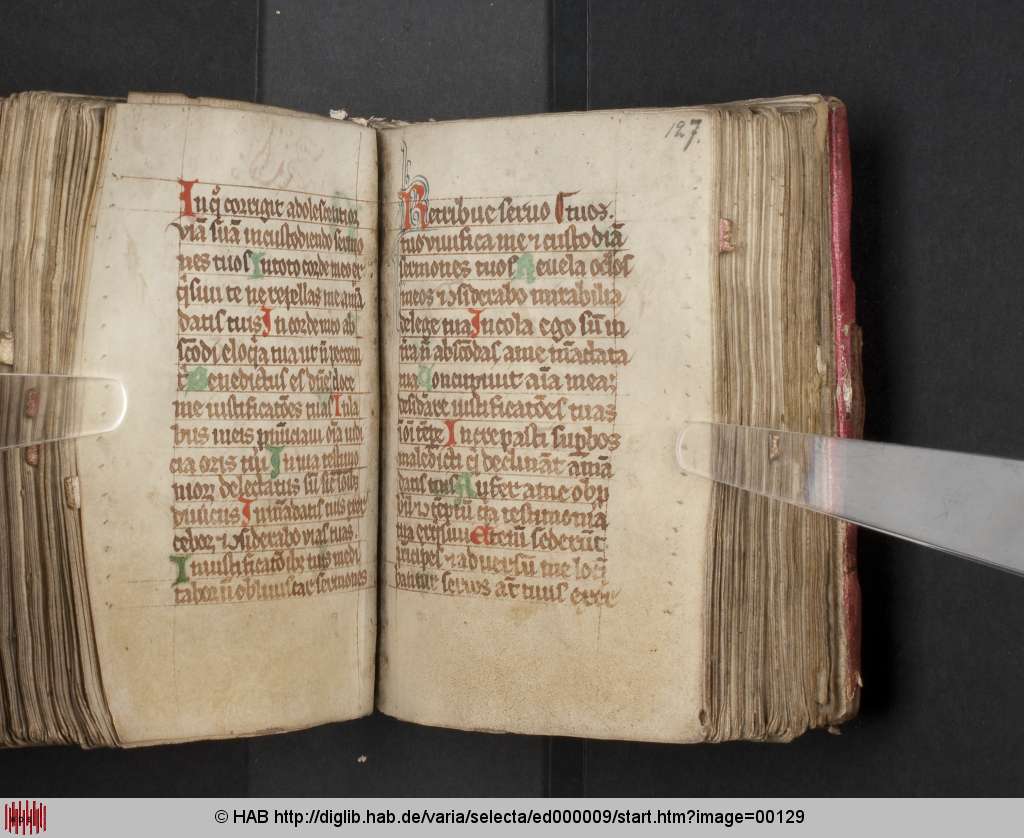 In q̄ corrigit adolescentior
viā suā in custodiendo sermo
nes tuos In toto corde meo ex
q̄siui te ne repellas me a mā
datis tuis In corde meo ab
scōdi eloq̄a tua ut n̄ peccem
t̄ Benedictus es dn̄e doce
me iustificatōes tuas In la
biis meis pn̄ciaui oīa iudi
cia oris tui In uia testimo
nioꝝ delectatus sū sic̄ ī oībꝫ
diuiciis In mādatis tuis exer
cebor ⁊ ꝯsiderabo uias tuas.
In iustificatōibꝫ tuis medi
tabor n̄ obliuiscar sermones
127.
Retribue seruo tuos.
tuo uiuifica me ⁊ custodiā
sermones tuos Reuela oc̄los
meos ⁊ ꝯsiderabo mirabilia
de lege tua Incola ego sū in
t̄ra n̄ abscōdas a me mādata
tua Concupiuit aīa mea
desid̄are iustificatōes tuas
ī oī tēpe Increpasti supbos
maledicti q̄ declināt a mā
datis tuis Aufer a me obp
biū ⁊ ꝯtēptū q̄a testimonia
tua exq̄siui Etenī sederūt
principes ⁊ aduersū me loq̄
bantur seruus aūt tuus exer
© HAB http://diglib.hab.de/varia/selecta/ed000009/start.htm?image=00129